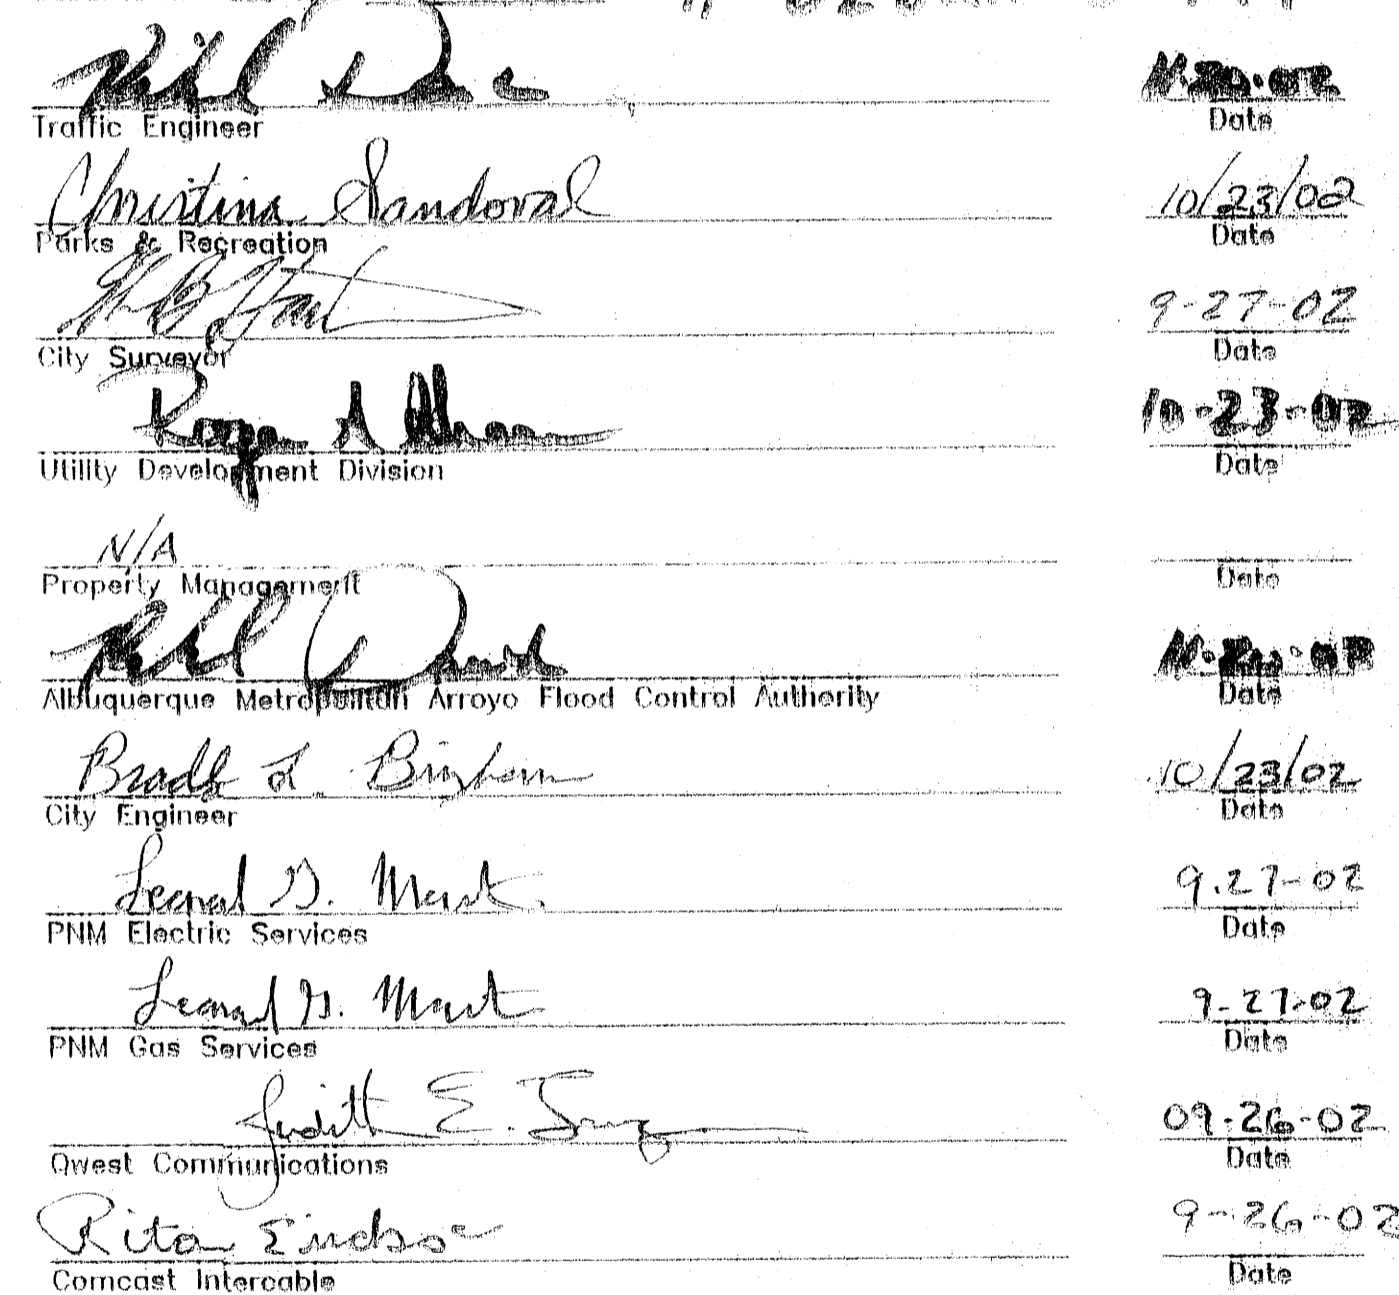 Traffic Engineer Date
Christina Sandoval 10/23/02
Parks & Recreation Date
9-27-02
City Surveyor Date
10-23-02
Utility Development Division Date
N/A
Property Management Date
Albuquerque Metropolitan Arroyo Flood Control Authority Date
Bradly L. Bingham 10/23/02
City Engineer Date
9.27-02
PNM Electric Services Date
9-27-02
PNM Gas Services Date
Judith E. 09-26-02
Qwest Communications Date
Rita Erickson 9-26-02
Comcast Intercable Date